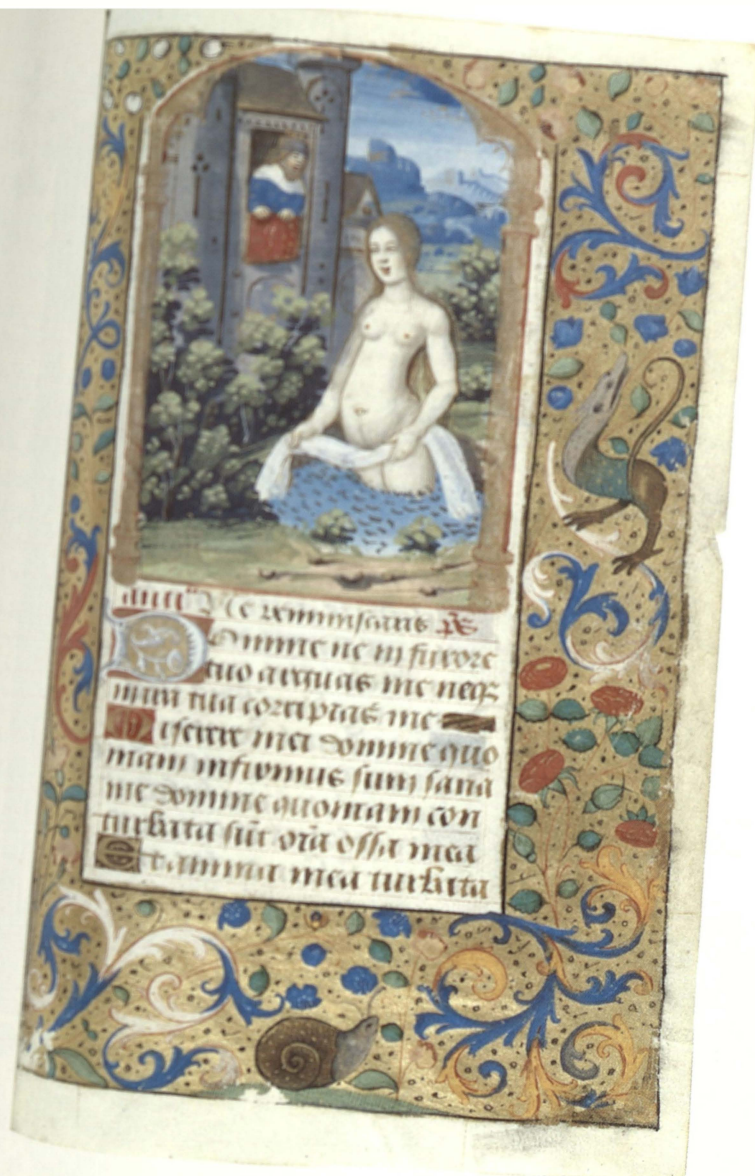 ant Ne reminiscaris ps
Domine ne in furore
tuo arguas me neqz
in ira tua corripias me
Miserere mei domine quo
niam infirmus sum sana
me domine quoniam con
turbata sūt oīa ossa mea
Et anima mea turbata